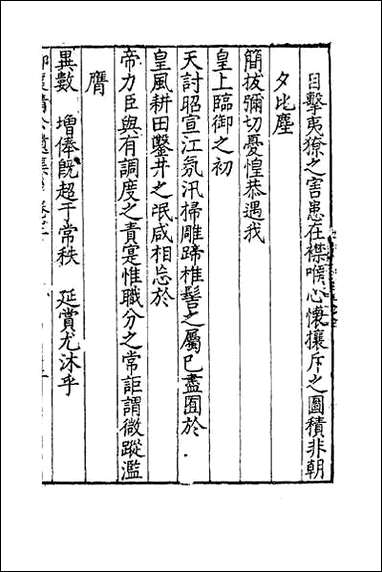 目擊夷獠之害患在襟喉心懷攘斥之圖積非朝
夕比塵
簡拔彌切憂惶恭遇我
皇上臨御之初
天討昭宣江氛汛掃雕蹄椎髻之屬已盡囿於
皇風耕田鑿井之氓咸相忘於
帝力臣與有調度之責寔惟職分之常詎謂微蹤濫
膺
異數 增俸旣超于常秩 延賞尤沐乎